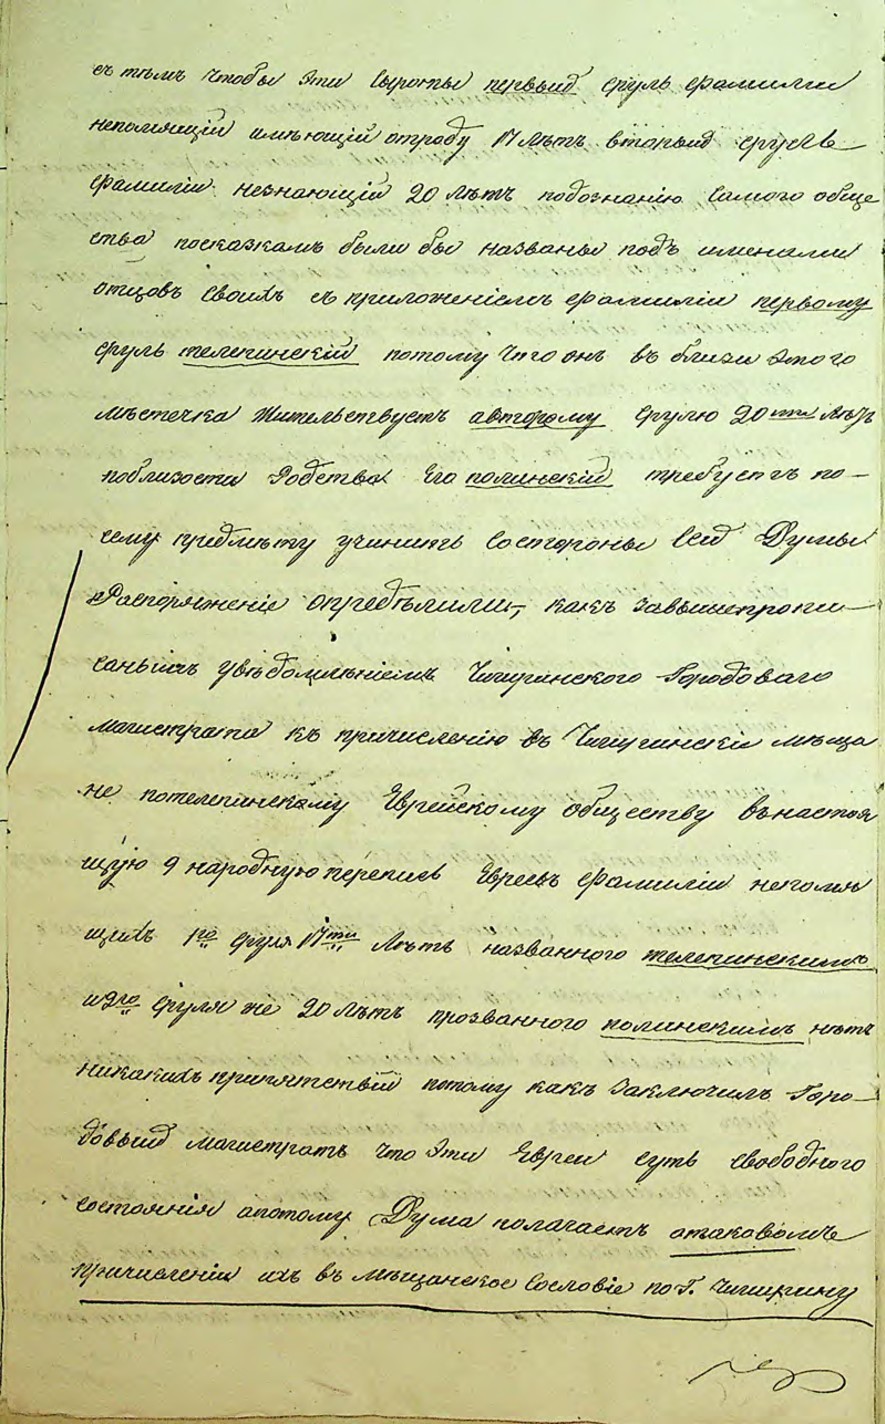 съ тѣмъ чтобы эти сироты первый сруль фамиліи
непомнящій имѣющій отроду 17 лѣтъ вторый сруль
фамиліи незнающій 20 лѣтъ подознанію самого обще
ства посказкамъ были бы названы подъ именами
отцовъ своихъ съ приложеніемъ фамиліи первому
срулъ телепинскій потому что онъ въ близи этого
мѣстечка жительствуетъ авторому срулю 20ти лѣтъ
поблизости Родства Его полинскій требуетъ по—
сему придмѣту учинить состороны сей Думы
Распоряженіе опредѣлили, какъ завышепропи—
саннымъ увѣдомлѣніемъ Чигиринского Городоваго
магистрата къ причислению въ Чигиринскіе мѣща
не потелепинскому Еврейскому обществу въ настоя
щую 9 народную перепись Евреевъ фамиліи непомня
щихъ 1го сруля 17ти Лѣтъ названного телепинскимъ
и 2го сруля же 20 лѣтъ прозванного полинскимъ нѣтъ
никакихъ припятствій потому какъ заключилъ Горо—
довый магистратъ что эти Евреи суть свободного
состоянія апотому Дума полагаетъ отаковомъ
причисленіи ихъ въ мѣщанское Сословіе по Г. Чигирину